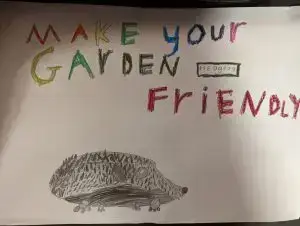 MAKE your
GArDEN
FriENDLY